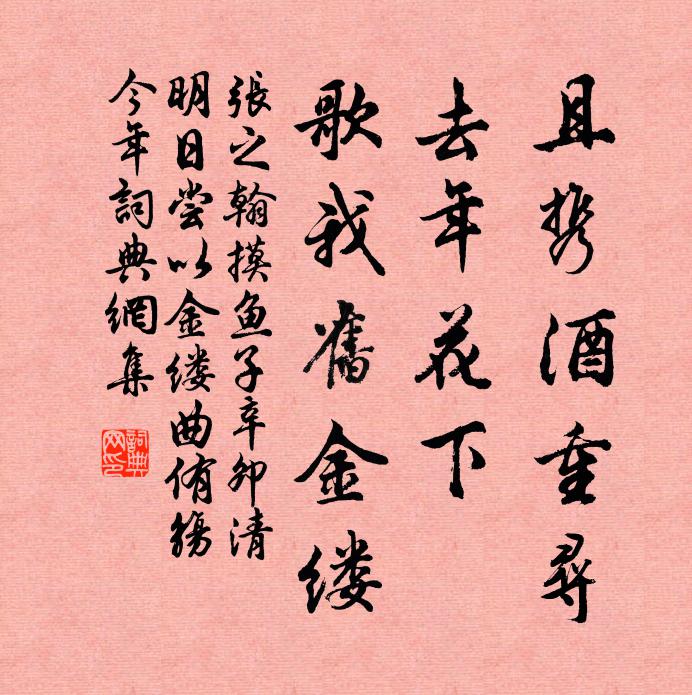 且携酒重尋
去年花下
歌我舊金缕
張之翰摸鱼子辛卯清
明日尝以金缕曲侑觞
今年詞典網集
詞典网印